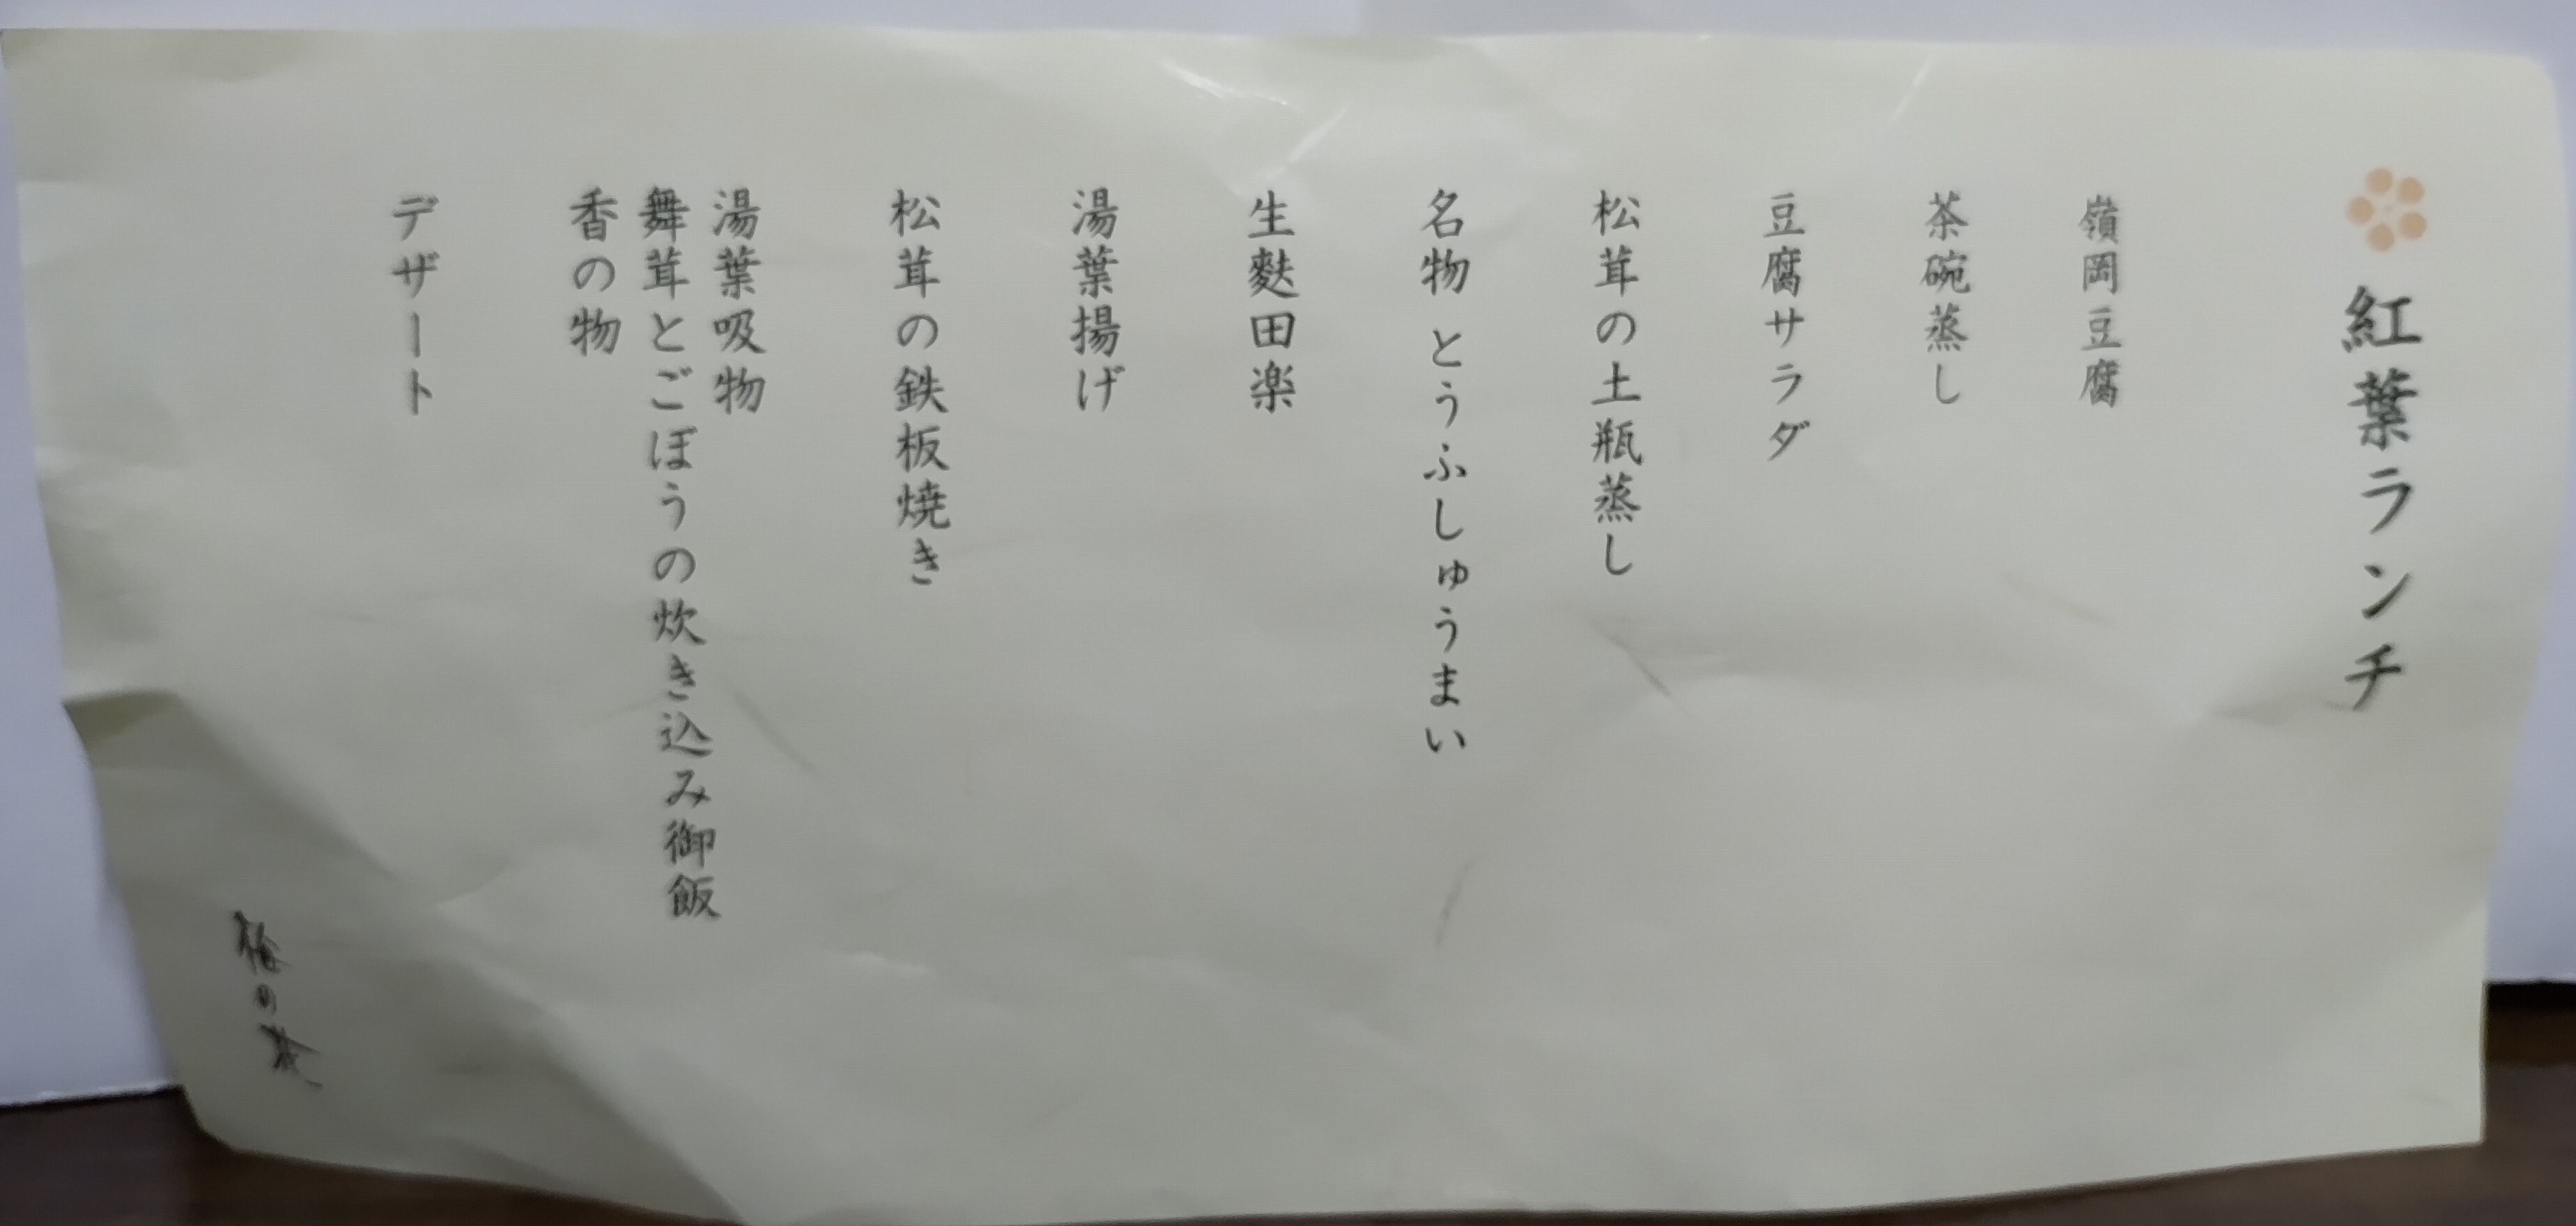 紅葉ランチ
嶺岡豆腐
茶碗蒸し
豆腐サラダ
松茸の土瓶蒸し
名物 とうふしゅうまい
生麩田楽
湯葉揚げ
松茸の鉄板焼き
湯葉吸物
舞茸とごぼうの炊き込み御飯
香の物
デザート
梅の花